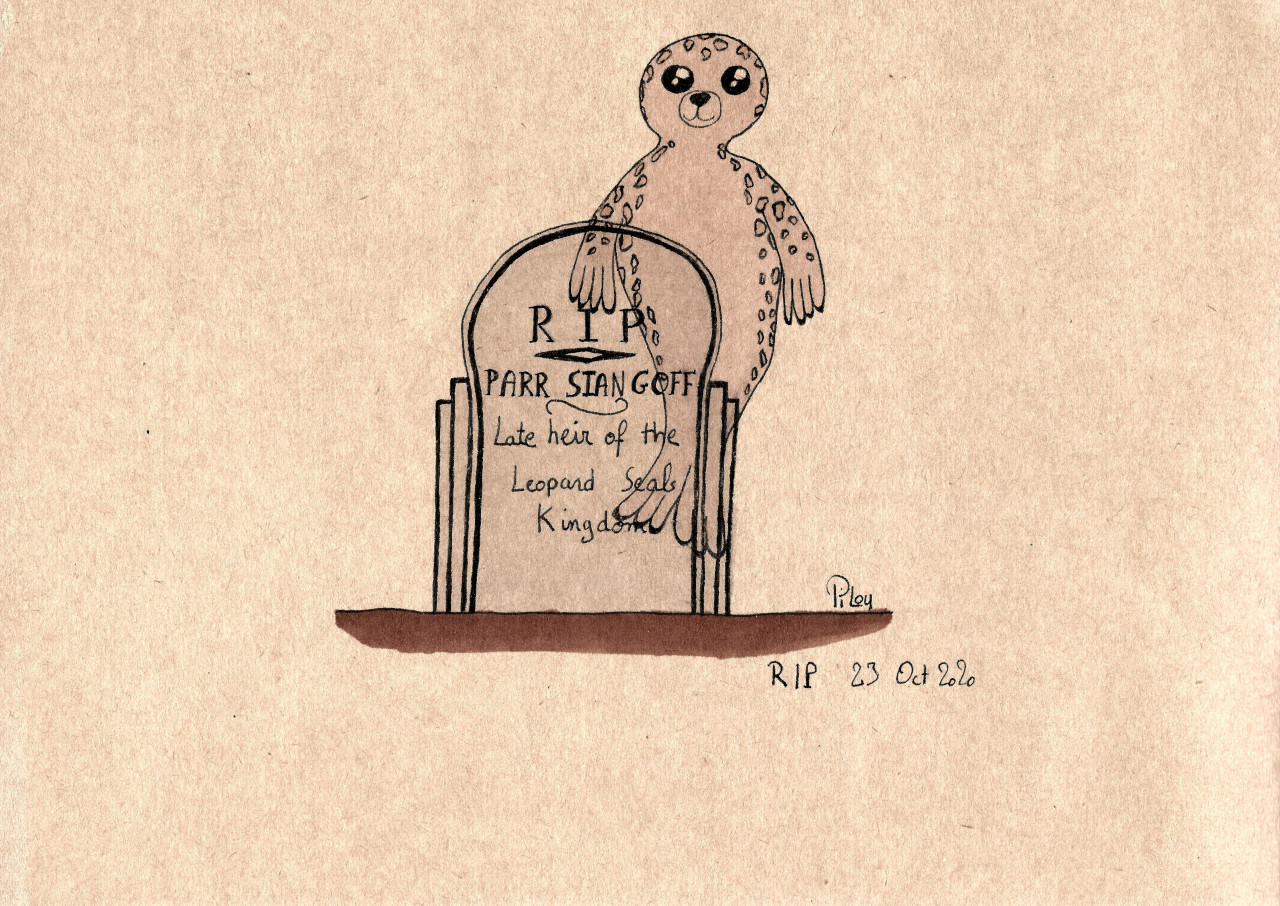 RIP
PARR SIANGOFF
Late heir of the
Leopard Seals
Kingdom
PiLoy
RIP 23 Oct 2020